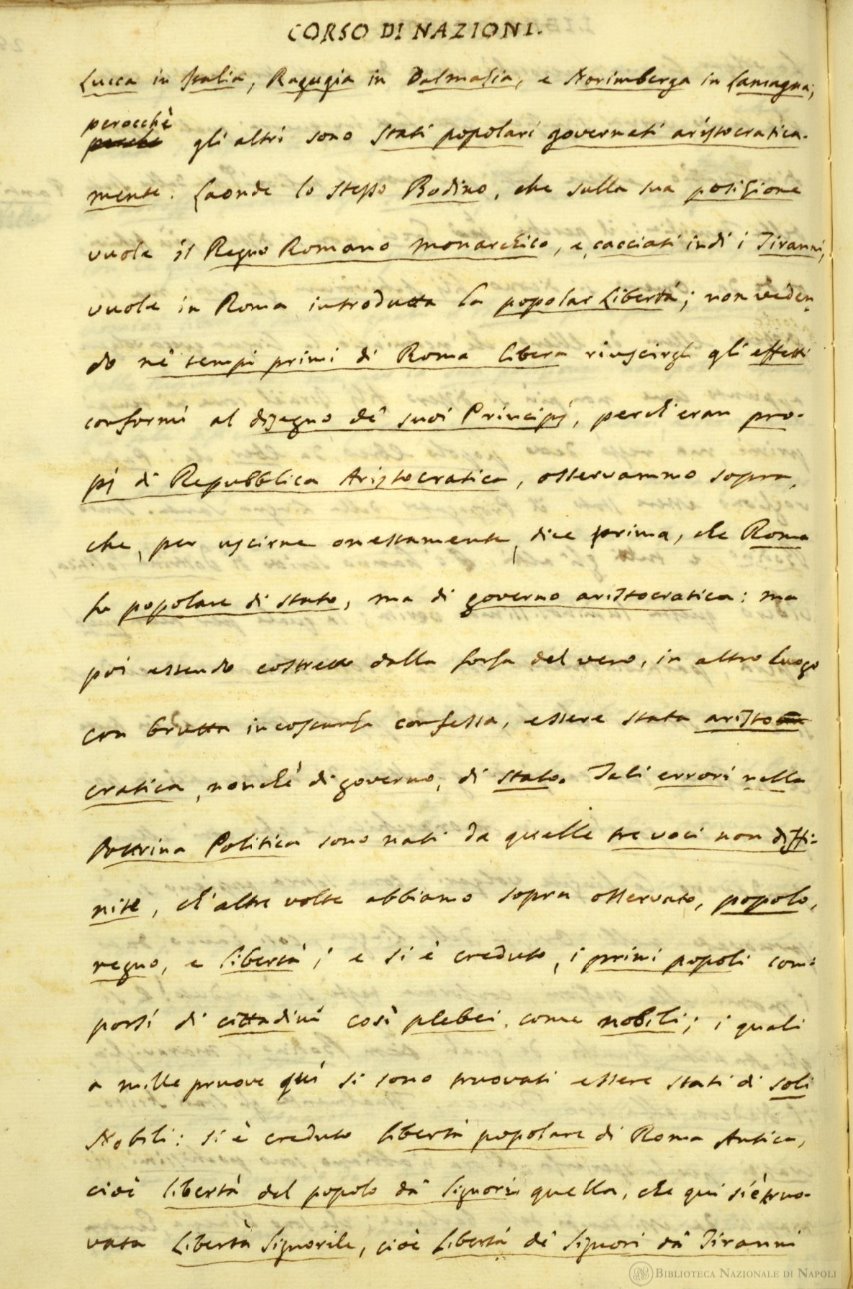 CORSO DI NAZIONI.
Lucca in Italia, Ragugia in Dalmazia, e Norimberga in Lamagna;
perocchè
perchè gli altri sono Stati popolari governati aristocratica-
mente. Laonde lo stesso Bodino, che sulla sua posizione
vuole il Regno Romano monarchico, e, cacciati indi i Tiranni,
vuole in Roma introdutta la popolar Libertà; non veden-
do ne' tempi primi di Roma libera riuscirgli gli effetti
conformi al disegno de' suoi Principj, perch'eran pro-
pj di Repubblica Aristocratica, osservammo sopra,
che, per uscirne onestamente, dice prima, che Roma
fu popolare di stato, ma di governo aristocratica: ma
poi essendo costretto dalla forza del vero, in altro luogo
con brutta incostanza confessa, essere stata aristo-
cratica, nonchè di governo, di stato. Tali errori nella
Dottrina Politica sono nati da quelle tre voci non diffi-
nite, ch'altre volte abbiamo sopra osservato, popolo,
regno, e libertà; e si è creduto, i primi popoli com-
porsi di cittadini così plebei, come nobili; i quali
a mille pruove quì si sono truovati essere stati di soli
Nobili: si è creduto libertà popolare di Roma Antica,
cioè libertà del popolo da' Signori quella, che qui si è truo-
vata Libertà Signorile, cioè Libertà de' Signori da' Tiranni
BIBLIOTECA NAZIONALE DI NAPOLI